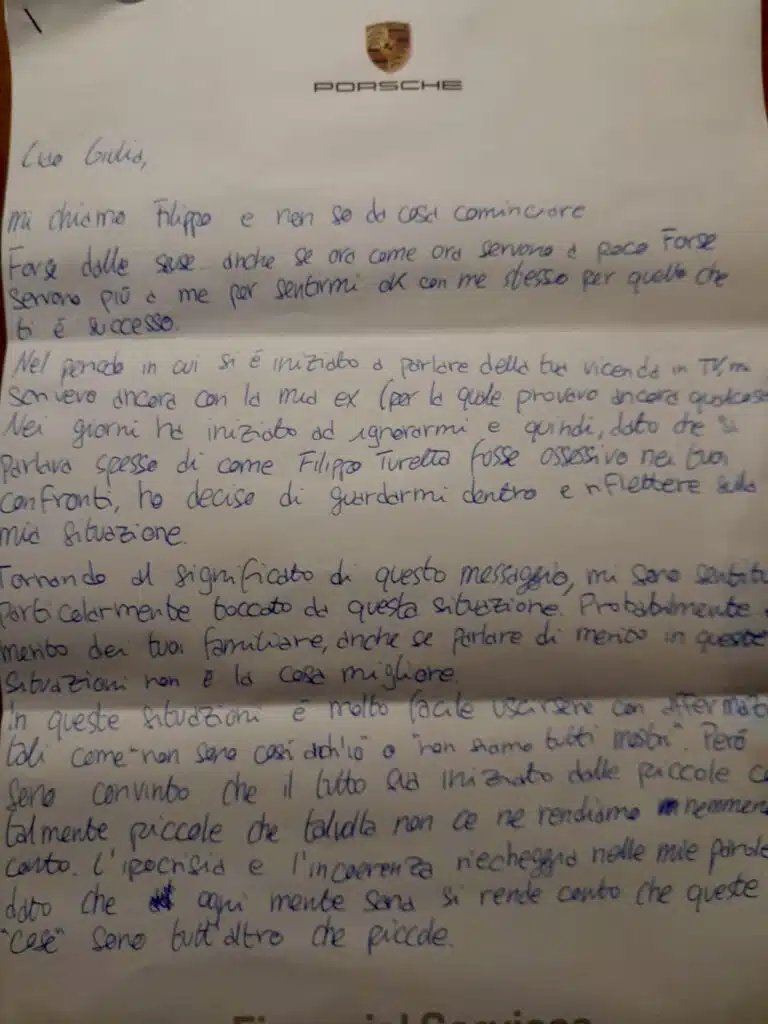 PORSCHE
Cara Giulia,
mi chiamo Filippo e non so da cosa cominciare
Forse dalle scuse anche se ora come ora servono a poco Forse
servono più a me per sentirmi ok con me stesso per quello che
ti è successo.
Nel periodo in cui si è iniziato a parlare della tua vicenda in TV, mi
scrivevo ancora con la mia ex (per la quale provavo ancora qualcosa
Nei giorni ha iniziato ad ignorarmi e quindi, dato che si
parlava spesso di come Filippo Turetta fosse ossessivo nei tuoi
confronti, ho deciso di guardarmi dentro e riflettere sulla
mia situazione.
Tornando al significato di questo messaggio, mi sono sentito
particolarmente toccato da questa situazione. Probabilmente
merito dei tuoi familiare, anche se parlare di merito in queste
situazioni non è la cosa migliore.
in queste situazioni è molto facile uscirsene con affermati
tali come "non sono così anch'io" o "non siamo tutti mostri". Però
sono convinto che il tutto sia iniziato dalle piccole co
talmente piccole che talvolta non ce ne rendiamo nemmen
conto. L'ipocrisia e l'incoerenza riecheggia nelle mie parole
dato che ogni mente sana si rende conto che queste
"cose" sono tutt'altro che piccole.
Financial Services